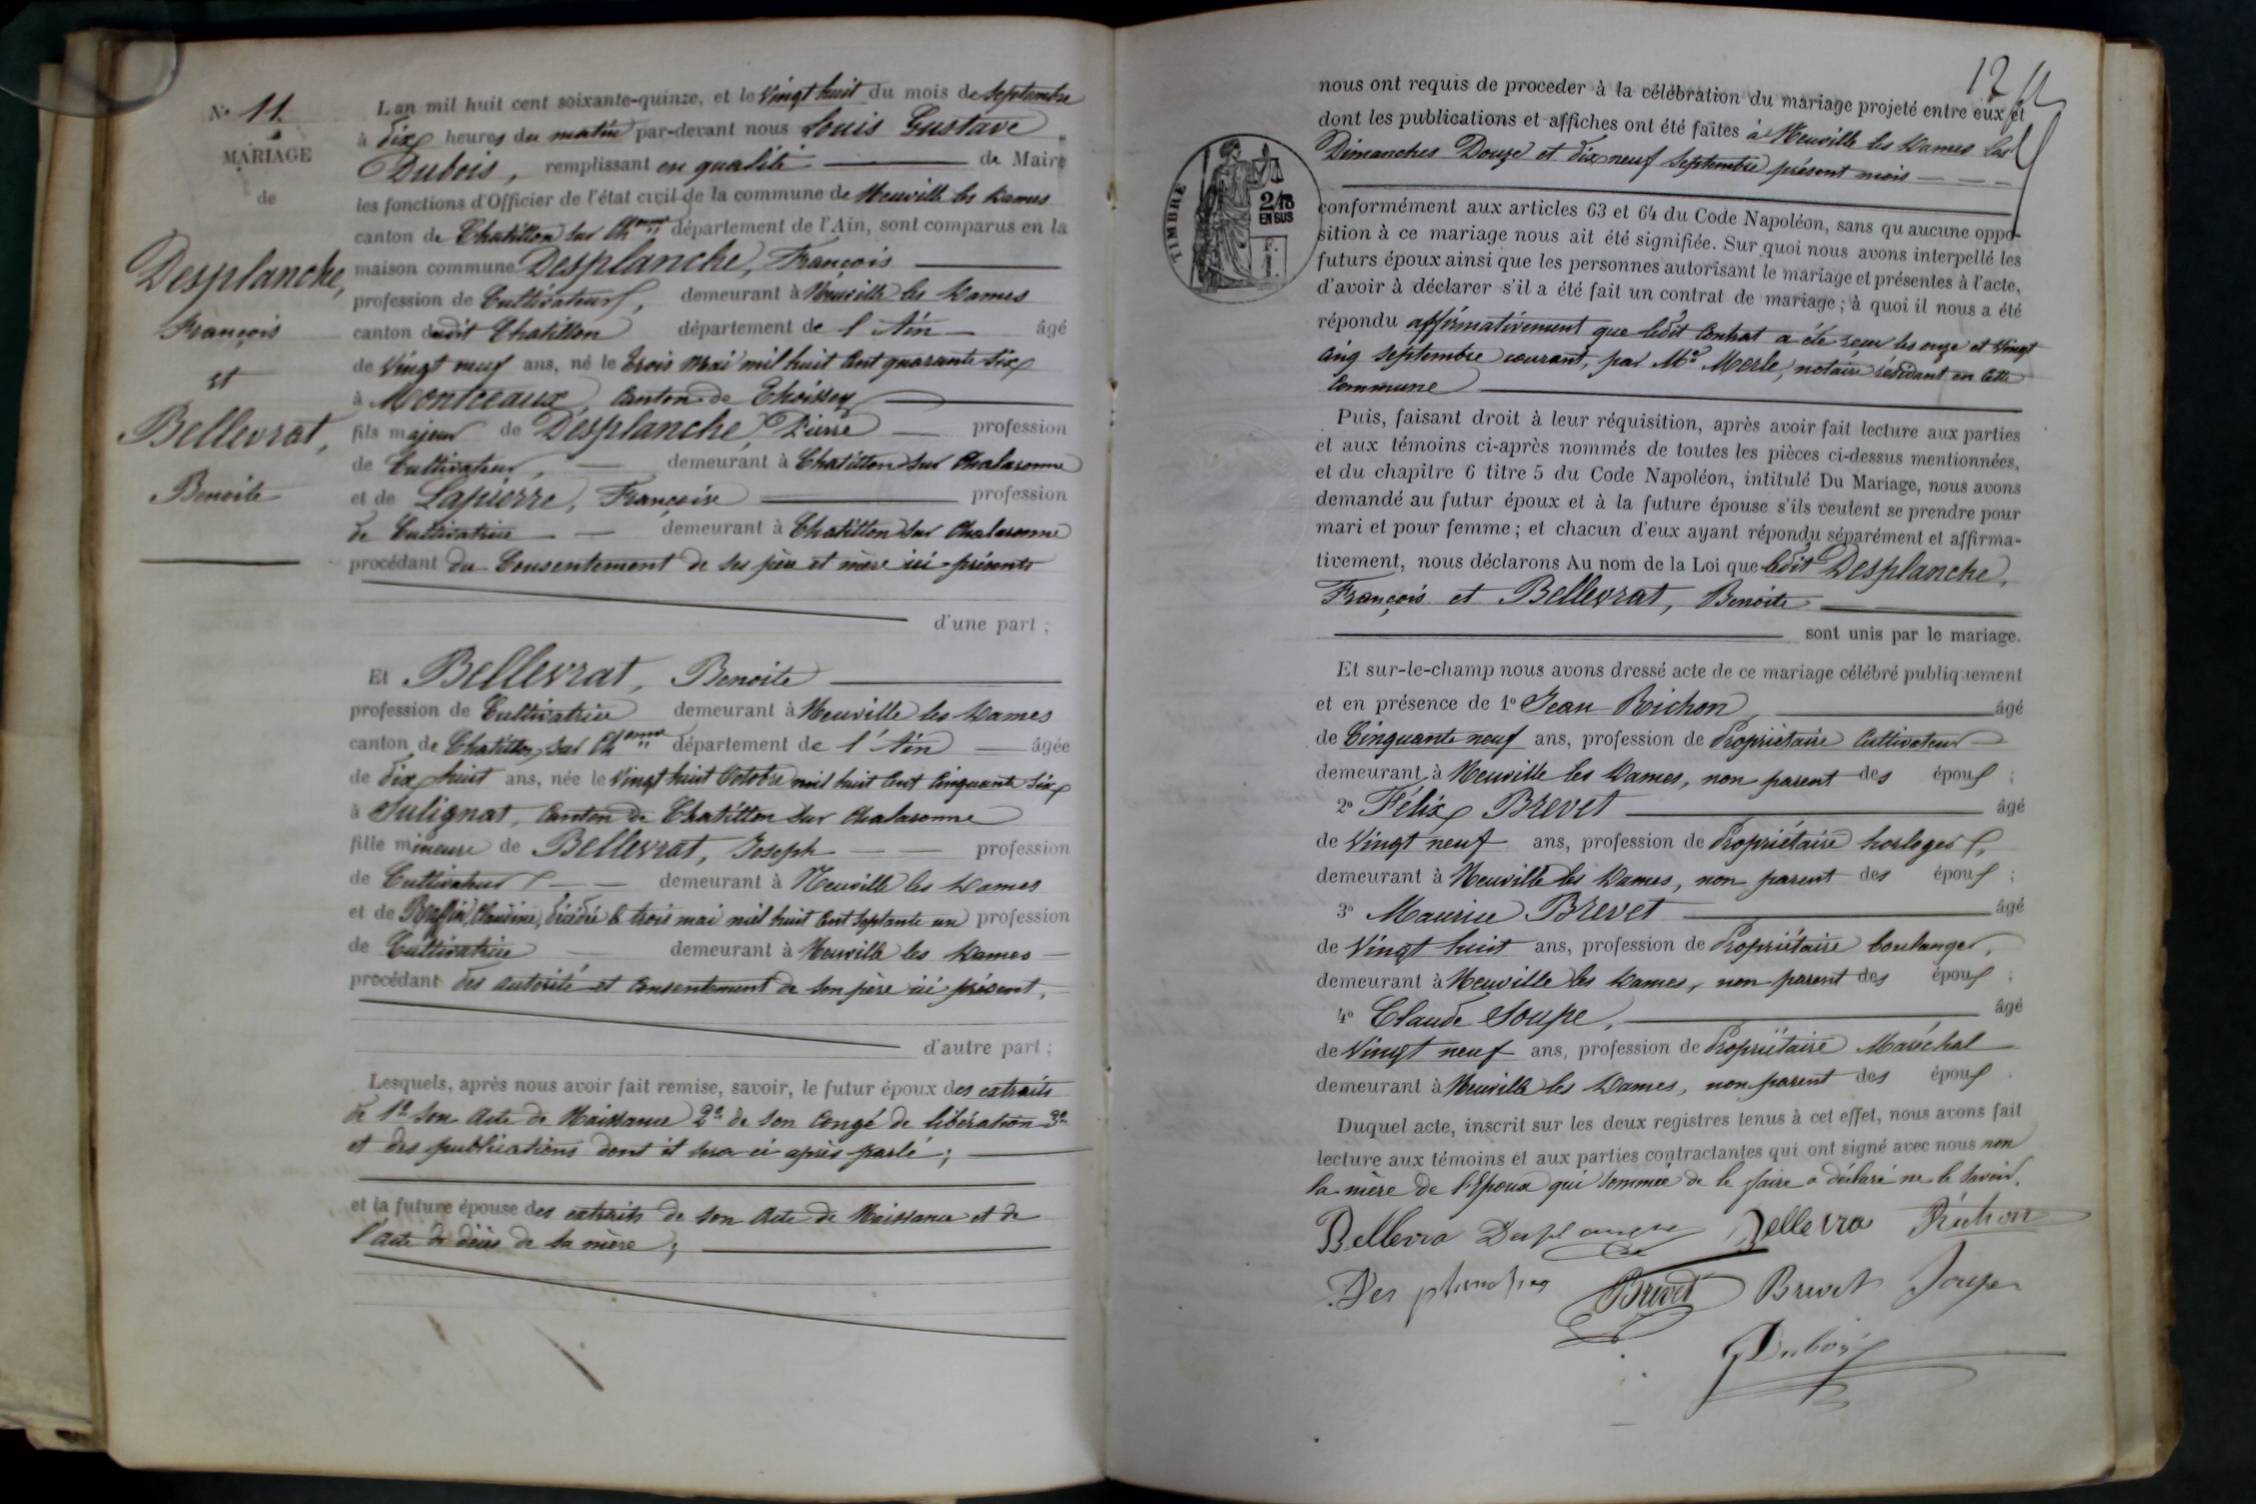 N° 11
MARIAGE
de
Desplanche,
François
et
Bellevrat,
Benoite
L'an mil huit cent soixante-quinze, et le vingt huit du mois de Septembre
à dix heures du matin par-devant nous Louis Gustave
Dubois, remplissant en qualité de Maire
les fonctions d'Officier de l'état civil de la commune de Neuville les Dames
canton de Chatillon sur Chonne département de l'Ain, sont comparus en la
maison commune Desplanche, François
profession de Cultivateur, demeurant à Neuville les Dames
canton dudit Chatillon département de l'Ain âgé
de vingt neuf ans, né le trois Mai mil huit cent quarante six
à Montceaux, Canton de Thoissey
fils majeur de Desplanche, Pierre profession
de Cultivateur, demeurant à Chatillon sur Chalaronne
et de Lapierre, Françoise profession
de Cultivatrice demeurant à Chatillon sur Chalaronne
procédant du Consentement de ses père et mère ici présents
d'une part ;
Et Bellevrat, Benoite
profession de Cultivatrice demeurant à Neuville les Dames
canton de Chatillon sur Chonne département de l'Ain âgée
de dix huit ans, née le vingt huit Octobre mil huit cent cinquante six
à Sulignat, Canton de Chatillon sur Chalaronne
fille mineure de Bellevrat, Joseph profession
de Cultivateur demeurant à Neuville les Dames
et de Claudine, décédée le trois mai mil huit cent septante un profession
de Cultivatrice demeurant à Neuville les Dames
procédant des autorité et consentement de son père ici présent,
d'autre part ;
Lesquels, après nous avoir fait remise, savoir, le futur époux des extraits
de 1° son acte de Naissance 2° de son Congé de libération 3°
et des publications dont il sera ci après parlé ;
et la future épouse des extraits de son acte de Naissance et de
l'acte de décès de sa mère ;
12
nous ont requis de proceder à la célébration du mariage projeté entre eux et
dont les publications et affiches ont été faites à Neuville les Dames les
Dimanches Douze et dix neuf Septembre présent mois
TIMBRE
2/10
EN SUS
conformément aux articles 63 et 64 du Code Napoléon, sans qu'aucune oppo-
sition à ce mariage nous ait été signifiée. Sur quoi nous avons interpellé les
futurs époux ainsi que les personnes autorisant le mariage et présentes à l'acte,
d'avoir à déclarer s'il a été fait un contrat de mariage ; à quoi il nous a été
répondu affirmativement que ledit Contrat a été reçu les onze et vingt
cinq Septembre courant, par Me Merle, notaire résidant en cette
Commune
Puis, faisant droit à leur réquisition, après avoir fait lecture aux parties
et aux témoins ci-après nommés de toutes les pièces ci-dessus mentionnées,
et du chapitre 6 titre 5 du Code Napoléon, intitulé Du Mariage, nous avons
demandé au futur époux et à la future épouse s'ils veulent se prendre pour
mari et pour femme ; et chacun d'eux ayant répondu séparément et affirma-
tivement, nous déclarons Au nom de la Loi que ledit Desplanche,
François et Bellevrat, Benoite
sont unis par le mariage.
Et sur-le-champ nous avons dressé acte de ce mariage célébré publiquement
et en présence de 1° Jean Richon âgé
de Cinquante neuf ans, profession de Propriétaire Cultivateur
demeurant à Neuville les Dames, non parent des époux ;
2° Félix Brevet âgé
de vingt neuf ans, profession de Propriétaire horloger,
demeurant à Neuville les Dames, non parent des époux ;
3° Maurice Brevet âgé
de vingt huit ans, profession de Propriétaire boulanger,
demeurant à Neuville les Dames, non parent des époux ;
4° Claude Soupe, âgé
de vingt neuf ans, profession de Propriétaire Maréchal
demeurant à Neuville les Dames, non parent des époux.
Duquel acte, inscrit sur les deux registres tenus à cet effet, nous avons fait
lecture aux témoins et aux parties contractantes qui ont signé avec nous non
la mère de l'Epoux qui sommée de le faire a déclaré ne le savoir.
Bellevra Desplanche Bellevra Richon
Desplanches Brevet Brevet Soupe
Dubois